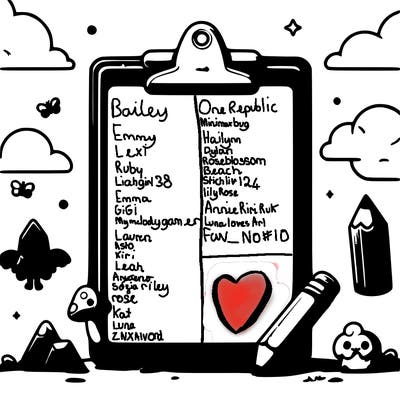 Bailey
Emmy
Lexi
Ruby
Liahgirl38
Emma
GiGi
Mymelodygamer
Lauren
Asto.
Kiri
Leah
riley
rose
Kat
Luna
ZNXAlvord
One Republic
Minimarbug
Hailynn
Dylan
Roseblossom
Beach
Stichliv124
lilyRose
Annie Rini Ruk
Luna loves Art
Fun_No#10